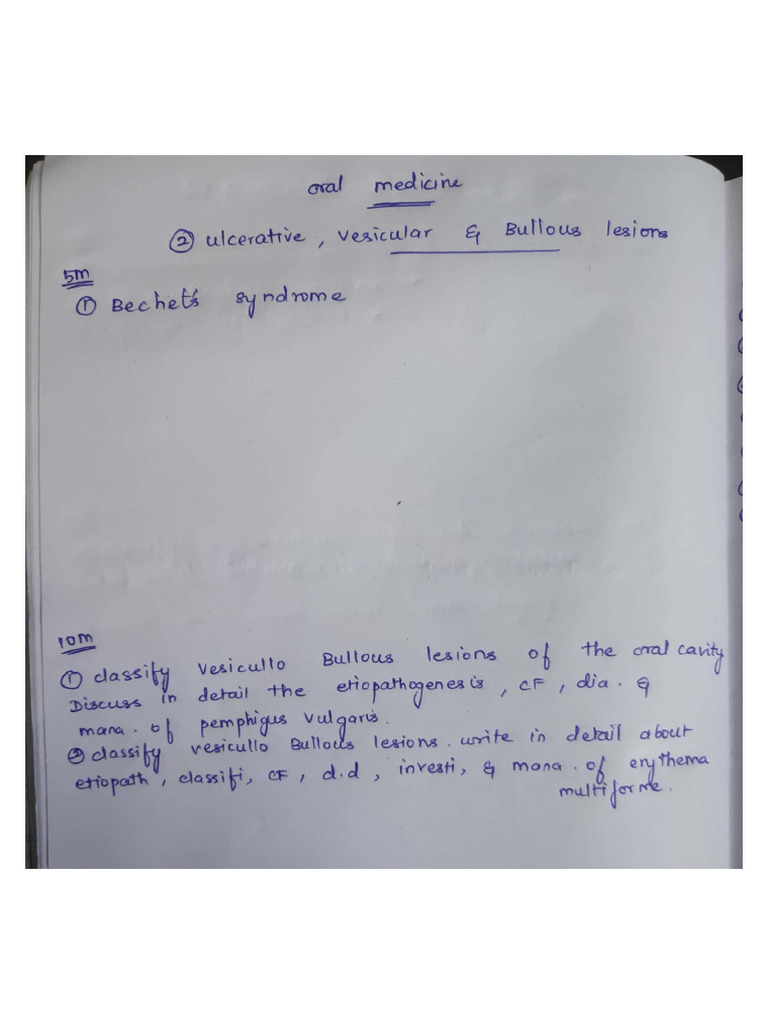 oral medicine
② ulcerative, vesicular & Bullous lesions
5m
① Bechet's syndrome
10m
① classify vesicullo Bullous lesions of the oral cavity
Discuss in detail the etiopathogenesis, CF, dia. &
mana. of pemphigus vulgaris.
② classify vesicullo Bullous lesions. write in detail about
etiopath, classifi, CF, d.d, investi, & mana. of erythema
multiforme.